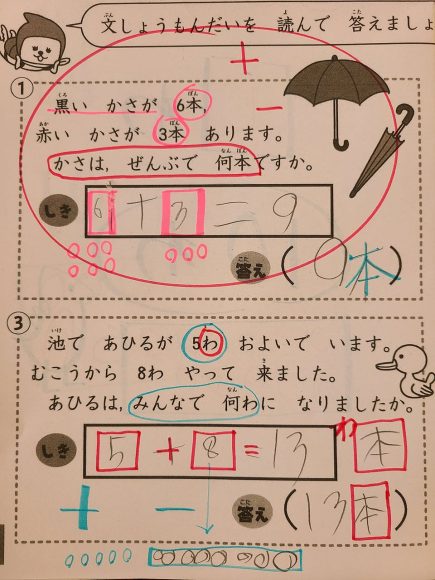 文しょうもんだいを 読んで 答えましょ
＋
①
黒い かさが 6本,
－
赤い かさが 3本 あります。
かさは, ぜんぶで 何本ですか。
しき 6＋3＝9
答え (9本)
③
池で あひるが 5わ およいで います。
むこうから 8わ やって 来ました。
あひるは, みんなで 何わに なりましたか。
しき 5＋8＝13 わ 本
＋ － 答え (13本)